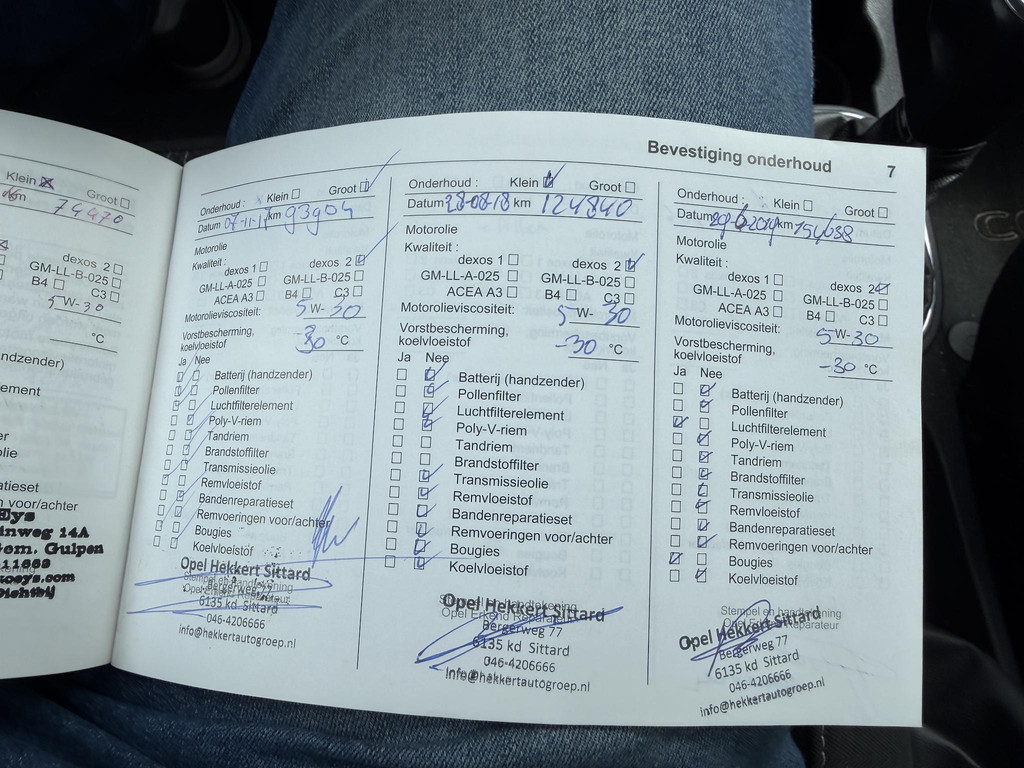 Bevestiging onderhoud 7
Klein Groot
74470
dexos 2
GM-LL-B-025
B4 C3
5W-30
°C
ndzender)
ement
er
olie
ratieset
n voor/achter
Eys
inweg 14A
em. Gulpen
Onderhoud : Klein Groot
Datum 07-11-17 km 93904
Motorolie
Kwaliteit :
dexos 1 dexos 2
GM-LL-A-025 GM-LL-B-025
ACEA A3 B4 C3
Motorolieviscositeit: 5W-30
Vorstbescherming,
koelvloeistof -30 °C
Ja Nee
Batterij (handzender)
Pollenfilter
Luchtfilterelement
Poly-V-riem
Tandriem
Brandstoffilter
Transmissieolie
Remvloeistof
Bandenreparatieset
Remvoeringen voor/achter
Bougies
Koelvloeistof
Opel Hekkert Sittard
Bergerweg 77
6135 kd Sittard
046-4206666
info@hekkertautogroep.nl
Onderhoud : Klein Groot
Datum 28-08-18 km 124840
Motorolie
Kwaliteit :
dexos 1 dexos 2
GM-LL-A-025 GM-LL-B-025
ACEA A3 B4 C3
Motorolieviscositeit: 5W-30
Vorstbescherming,
koelvloeistof -30 °C
Ja Nee
Batterij (handzender)
Pollenfilter
Luchtfilterelement
Poly-V-riem
Tandriem
Brandstoffilter
Transmissieolie
Remvloeistof
Bandenreparatieset
Remvoeringen voor/achter
Bougies
Koelvloeistof
Opel Hekkert Sittard
Opel Erkend Reparateur
Bergerweg 77
6135 kd Sittard
046-4206666
info@hekkertautogroep.nl
Onderhoud : Klein Groot
Datum km
Motorolie
Kwaliteit :
dexos 1 dexos 2
GM-LL-A-025 GM-LL-B-025
ACEA A3 B4 C3
Motorolieviscositeit: 5W-30
Vorstbescherming,
koelvloeistof -30 °C
Ja Nee
Batterij (handzender)
Pollenfilter
Luchtfilterelement
Poly-V-riem
Tandriem
Brandstoffilter
Transmissieolie
Remvloeistof
Bandenreparatieset
Remvoeringen voor/achter
Bougies
Koelvloeistof
Stempel en handtekening
Opel Hekkert Sittard
Bergerweg 77
6135 kd Sittard
046-4206666
info@hekkertautogroep.nl